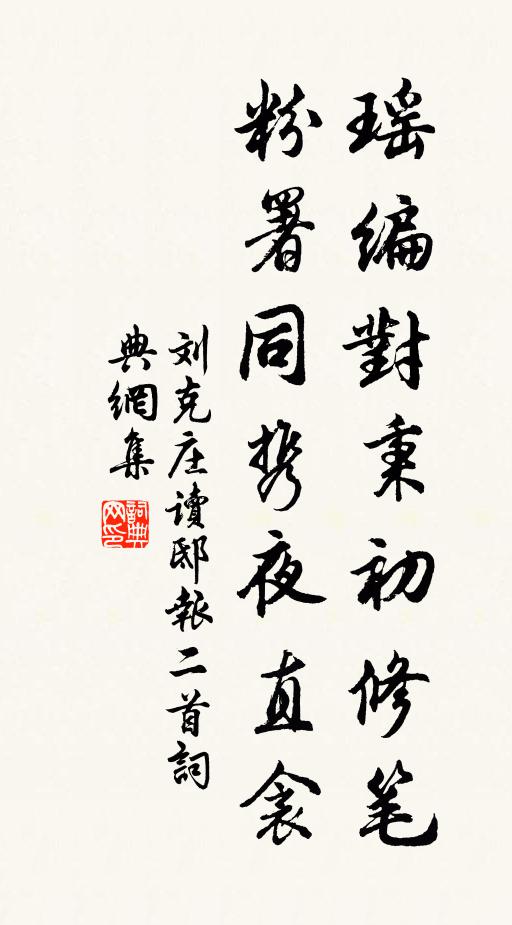 瑶编對秉初修笔
粉署同携夜直衾
刘克庄读邸報二首詞
典網集
詞典
网印